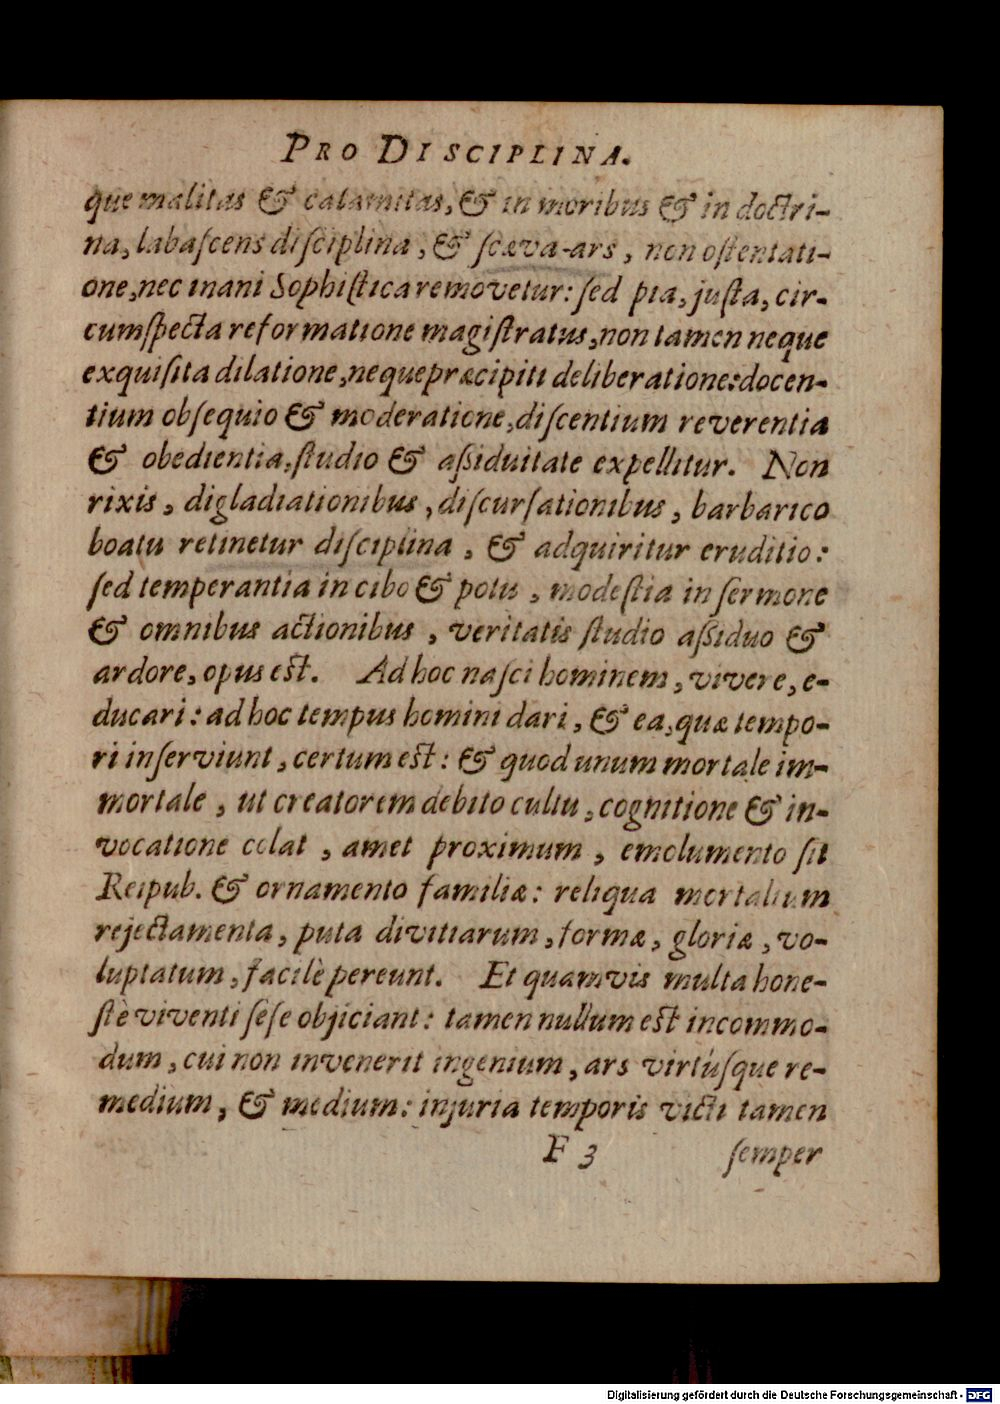 PRO DISCIPLINA.
que malitas & calamitas, & in moribus & in doctri-
na, labaſcens diſciplina, & ſcæva-ars, non oſtentati-
one, nec inani Sophiſtica removetur: ſed pia, juſta, cir-
cumſpecta reformatione magiſtratus, non tamen neque
exquiſita dilatione, neque præcipiti deliberatione: docen-
tium obſequio & moderatione, diſcentium reverentia
& obedientia, ſtudio & aſsiduitate expellitur. Non
rixis, digladiationibus, diſcurſationibus, barbarico
boatu retinetur diſciplina, & adquiritur eruditio:
ſed temperantia in cibo & potu, modeſtia in ſermone
& omnibus actionibus, veritatis ſtudio aſsiduo &
ardore, opus eſt. Ad hoc naſci hominem, vivere, e-
ducari: ad hoc tempus homini dari, & ea, quæ tempo-
ri inſerviunt, certum eſt: & quod unum mortale im-
mortale, ut creatorem debito cultu, cognitione & in-
vocatione colat, amet proximum, emolumento ſit
Reipub. & ornamento familiæ: reliqua mortalium
rejectamenta, puta divitiarum, formæ, gloriæ, vo-
luptatum, facilè pereunt. Et quamvis multa hone-
ſtè viventi ſeſe objiciant: tamen nullum eſt incommo-
dum, cui non invenerit ingenium, ars virtúſque re-
medium, & medium: injuria temporis victi tamen
F 3 ſemper
Digitalisierung gefördert durch die Deutsche Forschungsgemeinschaft - DFG